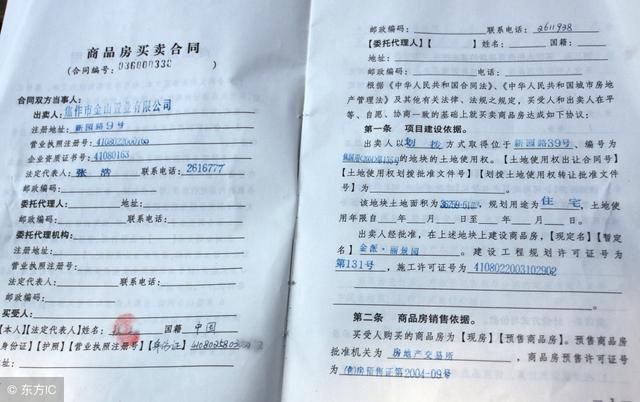 商品房买卖合同
(合同编号: 036000330 )
合同双方当事人:
出卖人: 焦作市金山置业有限公司
注册地址: 新园路9号
营业执照注册号: 4108022000165
企业资质证书号: 41080163
法定代表人: 张 浩 联系电话: 2616777
邮政编码:
委托代理人: 地址:
邮政编码: 联系电话:
委托代理机构:
注册地址:
营业执照注册号:
法定代表人: 联系电话:
邮政编码:
买受人:
【本人】【法定代表人】姓名: 国籍 中国
【身份证】【护照】【营业执照注册号】【身份证】 4108025803
地址:
邮政编码: 联系电话: 2611938
【委托代理人】【 】姓名: 国籍:
地址:
邮政编码: 电话:
根据《中华人民共和国合同法》、《中华人民共和国城市房地
产管理法》及其他有关法律、法规之规定,买受人和出卖人在平
等、自愿、协商一致的基础上就买卖商品房达成如下协议:
第一条 项目建设依据。
出卖人以 划拨 方式取得位于 新园路39号 、编号为
的地块的土地使用权。【土地使用权出让合同号】
【土地使用权划拨批准文件号】【划拨土地使用权转让批准文件
号】为 。
该地块土地面积为 ,规划用途为 住宅 ,土地使
用年限自 年 月 日至 年 月 日。
出卖人经批准,在上述地块上建设商品房,【现定名】【暂定
名】 金派·丽景园 。建设工程规划许可证号为
第131号 ,施工许可证号为 4108022003102902
第二条 商品房销售依据。
买受人购买的商品房为【现房】【预售商品房】。预售商品房
批准机关为 房地产交易所 ,商品房预售许可证号
为 房预售证第2004-09号
© 东方IC